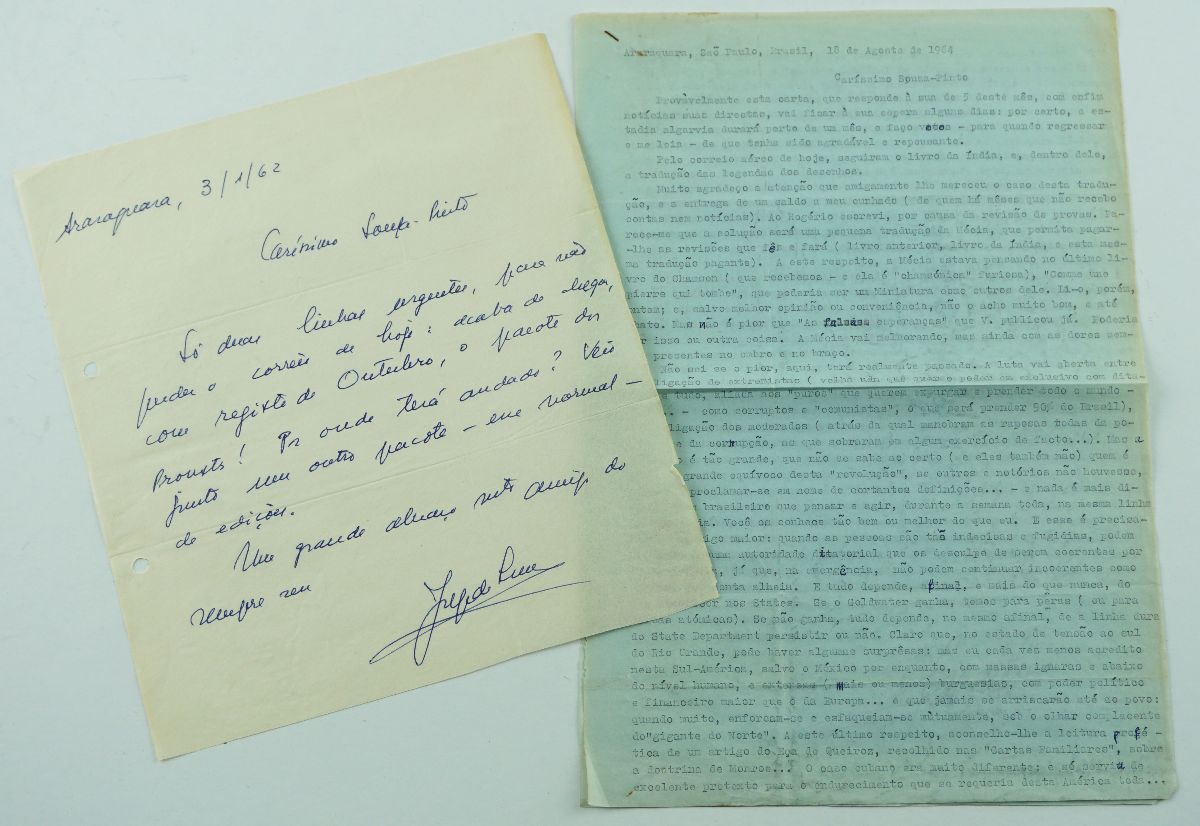 Araraquara, 3/1/62
Caríssimo Souza-Pinto
Só duas linhas urgentes, para não
perder o correio de hoje: acaba de chegar,
com registo de Outubro, o pacote dos
Prousts! Por onde terá andado? Veio
junto um outro pacote — esse normal —
de edições.
Um grande abraço deste amigo do
sempre seu
Araraquara, Saõ Paulo, Brasil, 18 de Agosto de 1964
Caríssimo Souza-Pinto
Provàvelmente esta carta, que responde à sua de 5 deste mês, com enfim
notícias suas directas, vai ficar à sua espera alguns dias: por certo, a es-
tadia algarvia durará perto de um mês, e faço votos - para quando regressar
e me leia - de que tenha sido agradável e repousante.
Pelo correio aéreo de hoje, seguiram o livro da Índia, e, dentro dele,
a tradução das legendas dos desenhos.
Muito agradeço a atenção que amigamente lhe mereceu o caso desta tradu-
ção, e a entrega de um saldo a meu cunhado ( de quem há mêses que não recebo
contas nem notícias). Ao Rogério escrevi, por causa da revisão de provas. Pa-
rece-me que a solução será uma pequena tradução da Mécia, que permita pagar-
-lhe as revisões que fês e fará ( livro anterior, livro da Índia, e esta mes-
ma tradução pagante). A este respeito, a Mécia estava pensando no último li-
vro do Chamson ( que recebemos - e ela é "chamsónica" furiosa), "Comme une
pierre qui tombe", que poderia ser um Miniatura como outros dele. Li-o, porém,
ontem; e, salvo melhor opinião ou conveniência, não o acho muito bom, e até
Mas não é pior que "As falsas esperanças" que V. publicou já. Poderia
r isso ou outra coisa. A Mécia vai melhorando, mas ainda com as dores sem-
presentes no ombro e no braço.
Não sei se o pior, aqui, terá realmente passado. A luta vai aberta entre
ligação de extremistas ( velha udn que querem o poder em exclusivo com dita-
aliada aos "puros" que querem expurgar e prender todo o mundo
... - como corruptos e "comunistas", o que será prender 90% do Brasil),
ligação dos moderados ( atrás da qual manobram as raposas todas da po-
e da corrupção, as que sobraram em algum exercício de facto...). Mas a
o é tão grande, que não se sabe ao certo ( e eles também não) quem é
grande equívoco desta "revolução", se outros e notórios não houvesse,
proclamar-se em nome de cortantes definições... - e nada é mais di-
brasileiro que pensar e agir, durante a semana toda, na mesma linha
ia. Você os conhece tão bem ou melhor do que eu. E esse é precisa-
igo maior: quando as pessoas são tão indecisas e fugidias, podem
uma autoridade ditatorial que os desculpe de serem coerentes por
, já que, na emergência, não podem continuar incoerentes como
enta alheia. E tudo depende, afinal, e mais do que nunca, do
cer nos States. Se o Goldwater ganha, temos para pêras ( ou para
as atómicas). Se não ganha, tudo depende, no mesmo afinal, de a linha dura
do State Department persistir ou não. Claro que, no estado de tensão ao sul
do Rio Grande, pode haver algumas surprêsas: mas eu cada vez menos acredito
nesta Sul-América, salvo o México por enquanto, com massas ignaras e abaixo
do nível humano, e extensas (mais ou menos) burguesias, com poder político
e financeiro maior que o da Europa... e que jamais se arriscarão até ao povo:
quando muito, enforcam-se e esfaqueiam-se mùtuamente, sob o olhar complacente
do"gigante do Norte". A este último respeito, aconselho-lhe a leitura profé -
tica de um artigo do Eça de Queiroz, recolhido nas "Cartas Familiares", sobre
a doutrina de Monroe... O caso cubano era muito diferente; e só serviu de
excelente pretexto para o endurecimento que se requeria desta América toda...